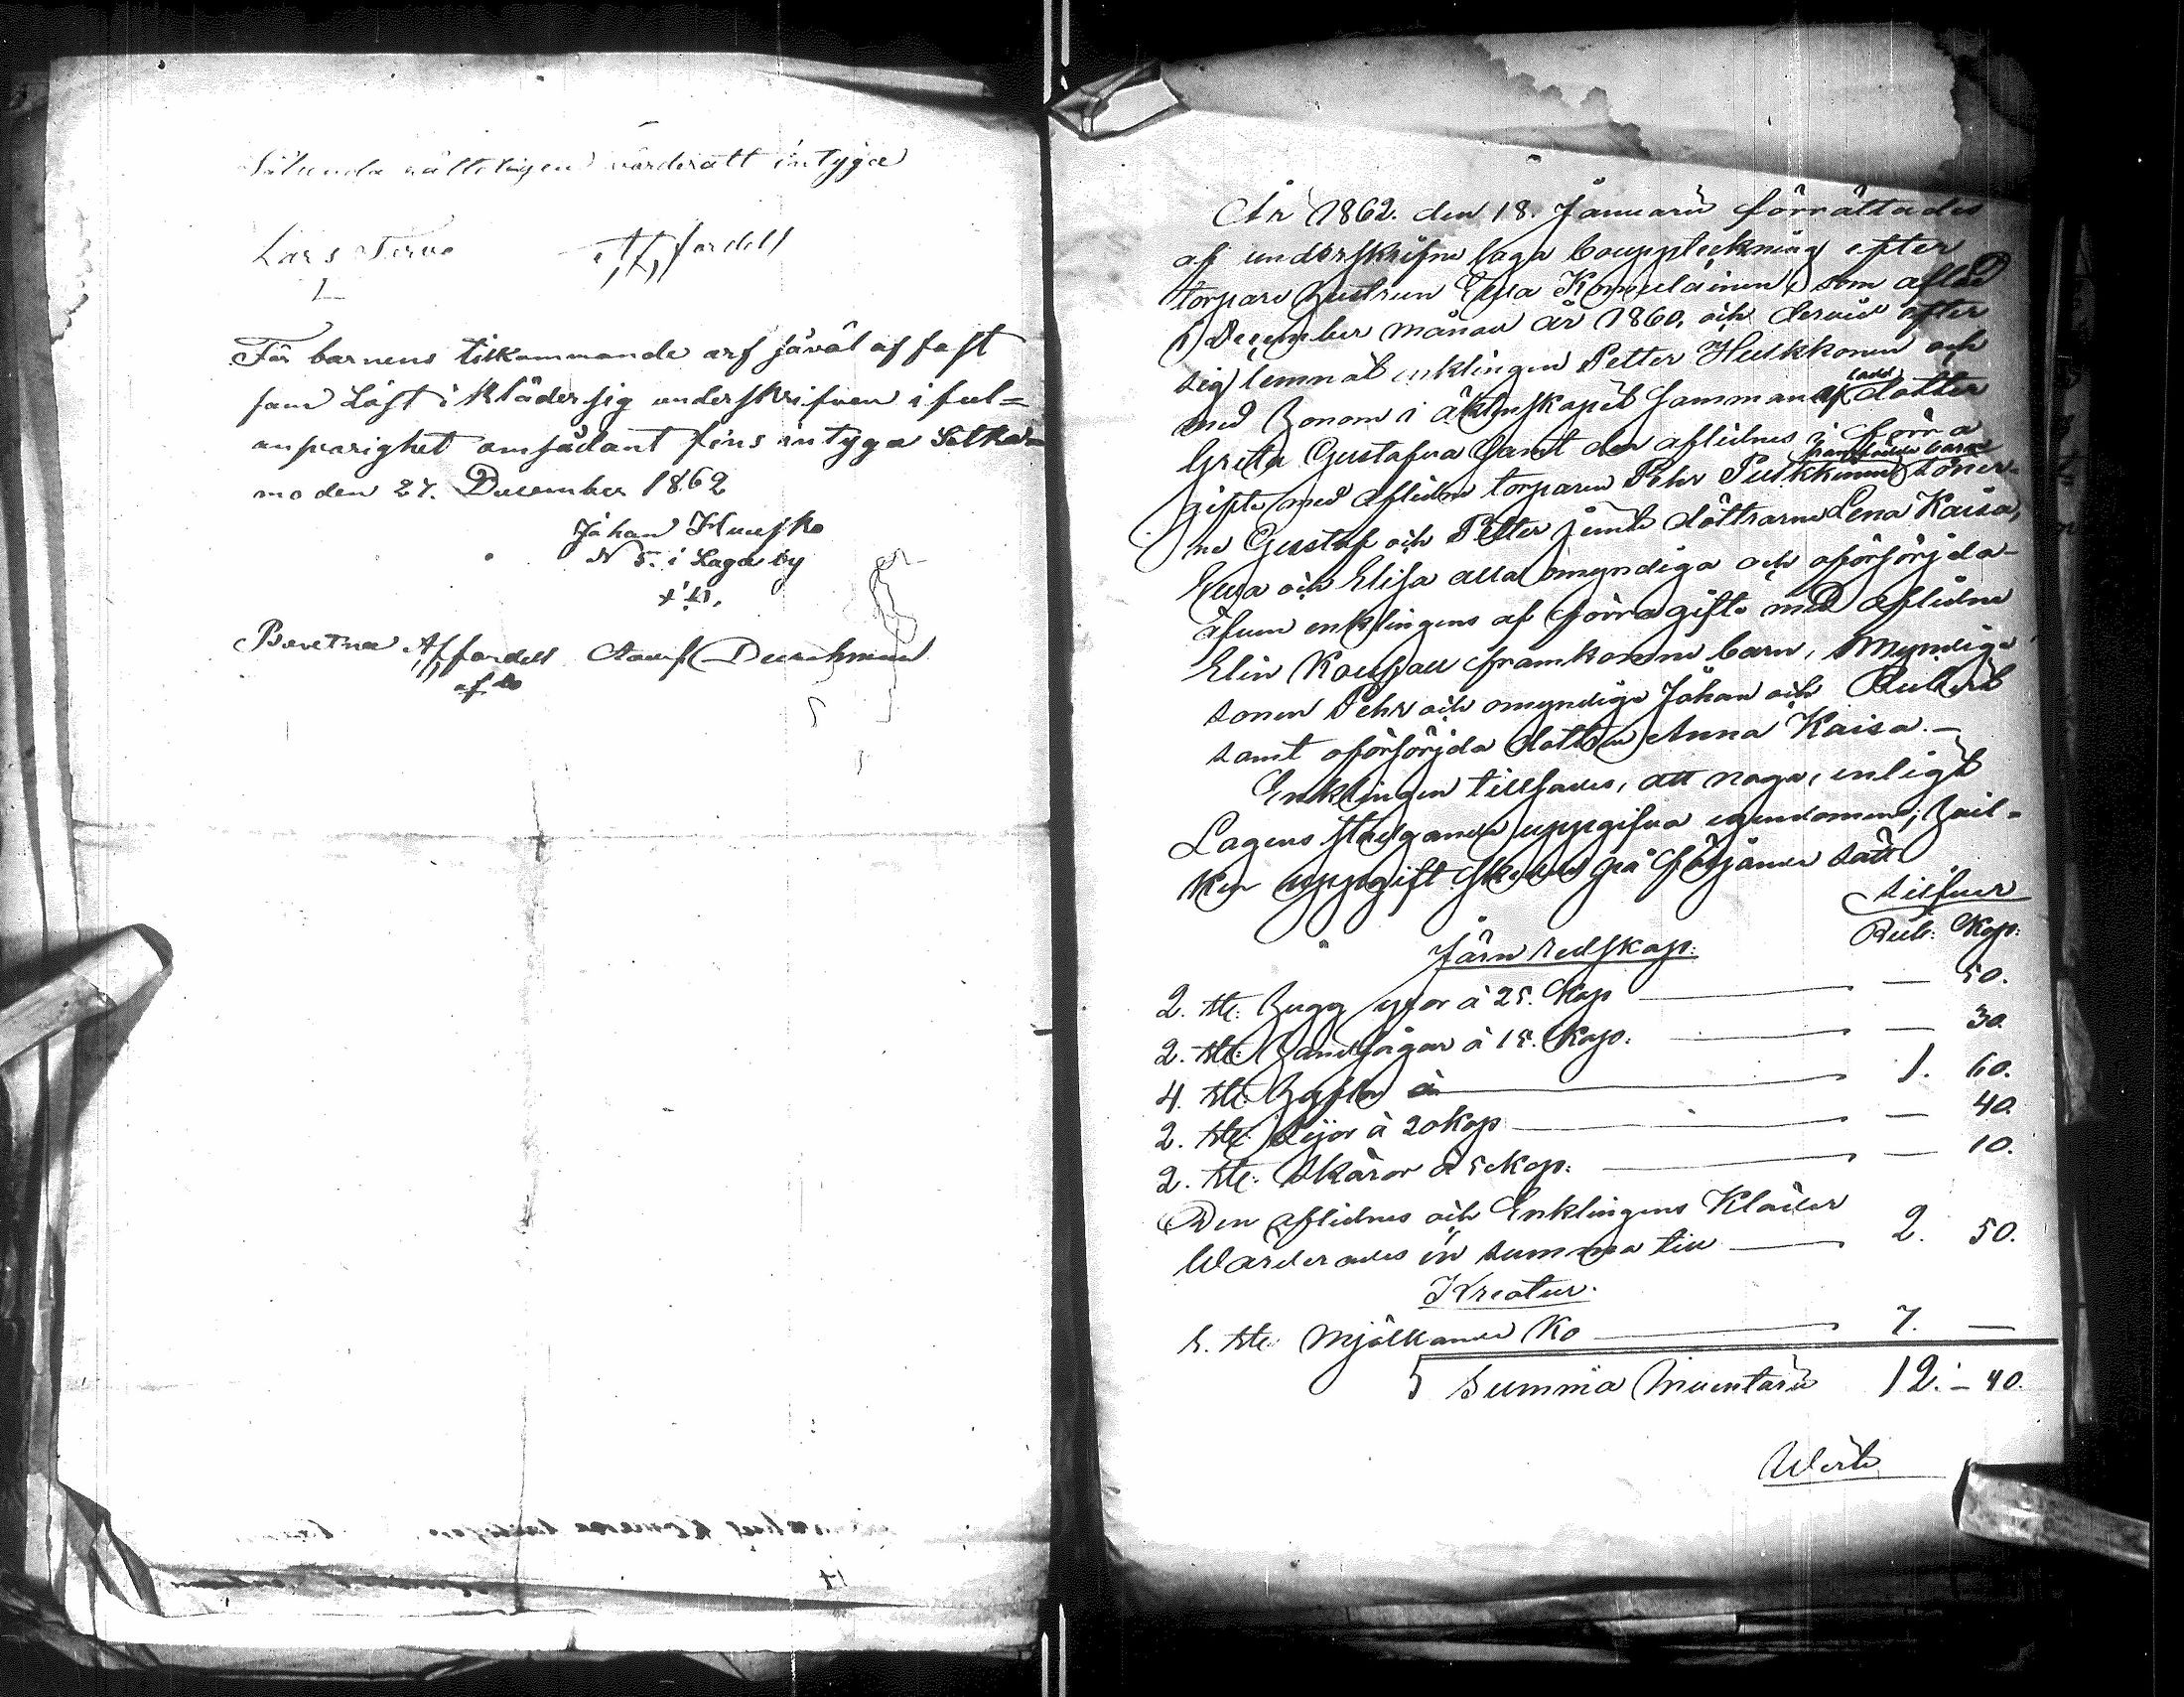 Sålunda rätteligen värderatt intyga
Lars Tervo A, L, fordell
L
För barnens tilkommande arf såväl af fast
som Löst i Kläder sig underskrifven i ful=
ansvarighet omsådant fins intyga Sotka=
mo den 27. December 1862
Johan Huusko
N 5. i Laga by
Bevetna A, L, fordell Adolf Durchman
af Do
År 1862. den 18. Januarii förrättades
af underskrifne laga bouppteckning efter
torpare hustrun Eva Komulainen, som afled
i December månad år 1860, och dervid efter
sig lemnat enklingen Petter Hulkkonen och
med honom i äktenskapet sammanaf lade dotter
Greta Gustafva samt den aflidnes i förra
gifte med aflidne torparen Pehr Pulkkinen framfödde barn söner-
ne Gustaf och Petter jemte döttrarne Lena Kaisa,
Eva och Elisa alla omyndiga och oförsörjda-
äfven enklingens af förra gifte med aflidne
Elin framkomne barn, Myndige
sonen Pehr och omyndige Johan och
samt oförsörjda dottren Anna Kaisa.-
Enklingen tillsades, att noga, enligt
Lagens stadgande uppgifva egendomen; hvil-
ken uppgift skedde på följande sätt
Silfver
Rub: Kop:
Järn redskap:
2. st: hugg yxor à 25. Kop — — 50.
2. st: handsågar à 15. Kop. — — 30.
4. st: à — 1. 60.
2. st: Lijor à 20 Kop — — 40.
2. st: Skäror à 5 Kop: — — 10.
Den aflidnes och Enklingens Kläder
Wärderades in summa till — 2. 50.
Kreatur.
1. st: Mjölkande Ko — 7. —
Summa Inventarii 12. — 40.